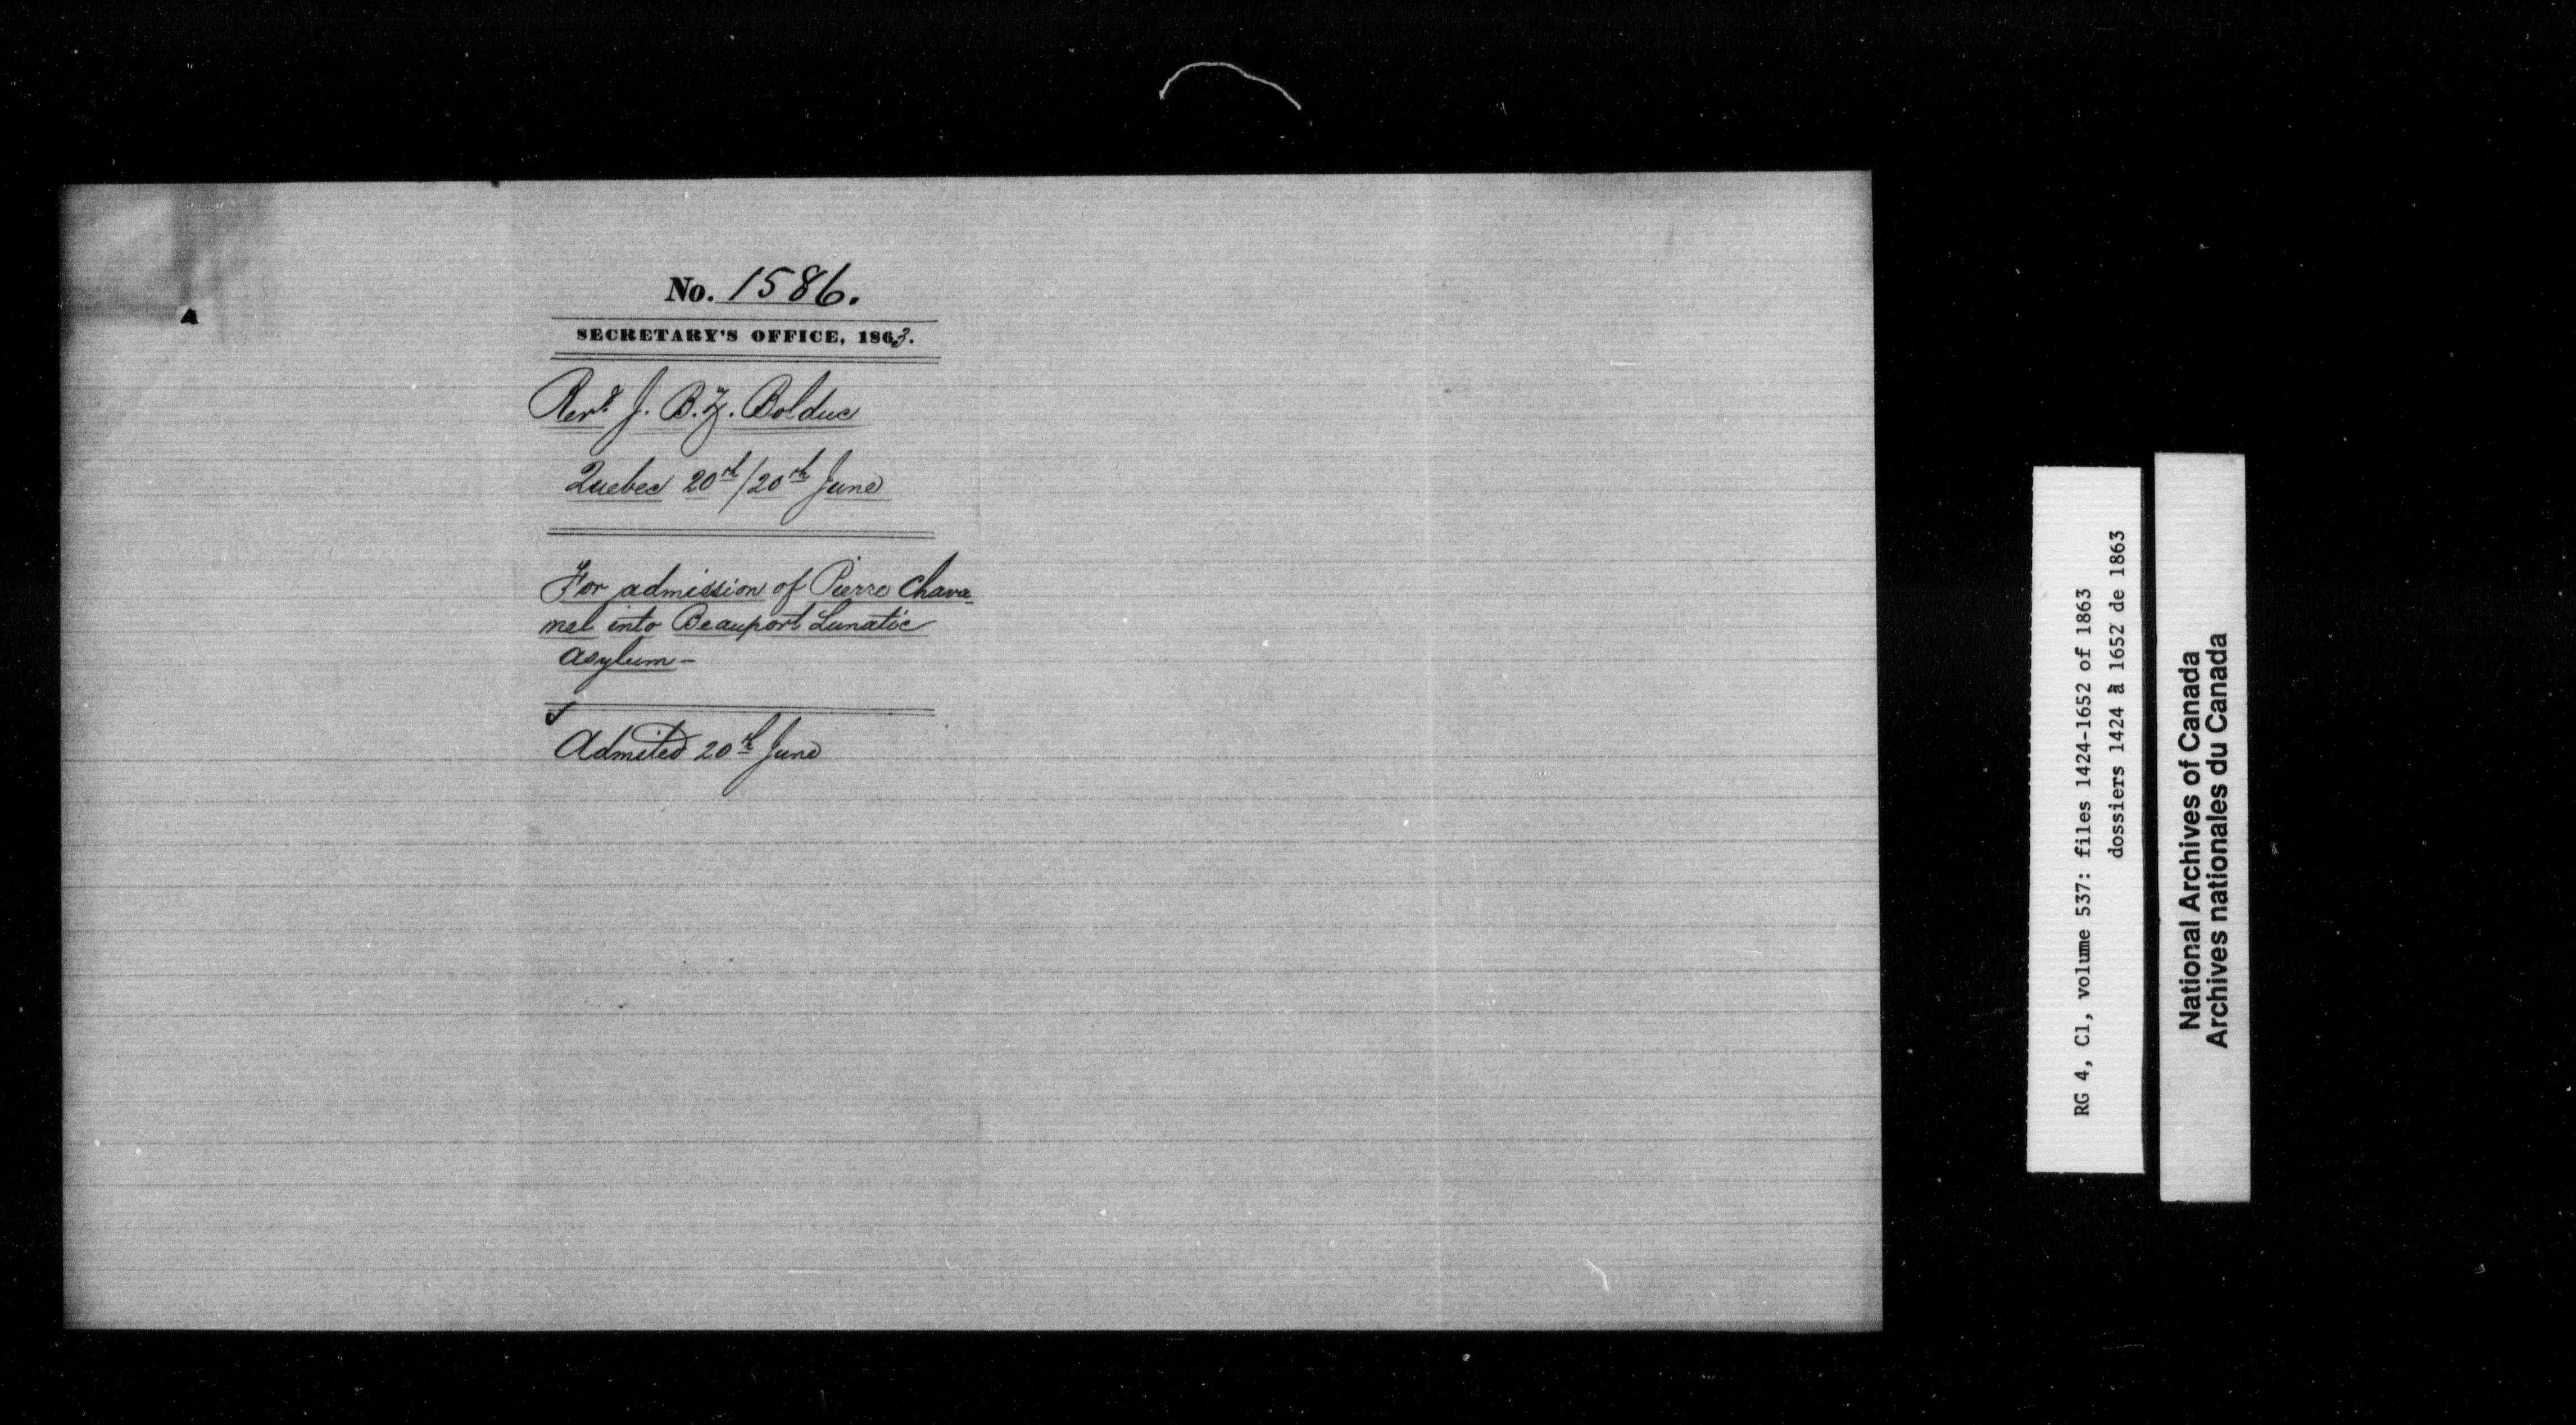 No. 1586.
SECRETARY'S OFFICE, 1863.
Revd. J. B. Z. Bolduc
Quebec 20th/20th June
For admission of Pierre Chava-
nel into Beauport Lunatic
Asylum -
Admited 20th June
RG 4, C1, volume 537: files 1424-1652 of 1863
dossiers 1424 à 1652 de 1863
National Archives of Canada
Archives nationales du Canada